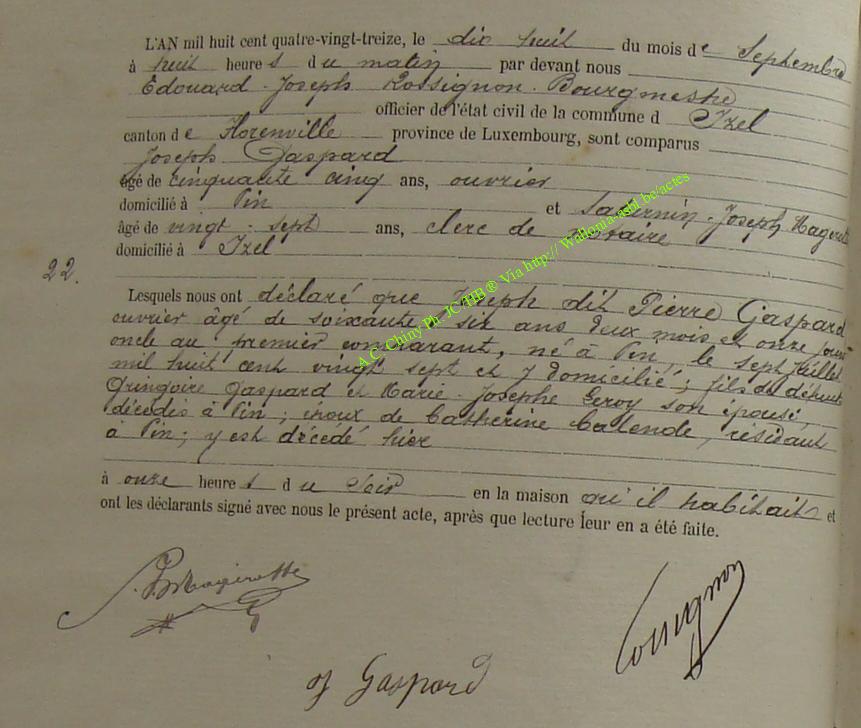 L'AN mil huit cent quatre-vingt-treize, le dix huit du mois de Septembre
à huit heures du matin par devant nous
Edouard-Joseph Rossignon Bourgmestre
officier de l'état civil de la commune d Izel
canton de Florenville province de Luxembourg, sont comparus
Joseph Gaspard
âgé de cinquante cinq ans, ouvrier
domicilié à Pin et Saturnin-Joseph
âgé de vingt-sept ans, clerc de notaire
domicilié à Izel
22.
Lesquels nous ont déclaré que Joseph dit Pierre Gaspard
ouvrier âgé de soixante six ans deux mois et onze jours
oncle au premier comparant, né à Pin, le sept Juillet
mil huit cent vingt sept et y domicilié; fils de défunts
Gringoire Gaspard et Marie-Josephe Leroy son épouse,
décédés à Pin; époux de Catherine Calende, résidant
à Pin; y est décédé hier
à onze heures du soir en la maison qu'il habitait et
ont les déclarants signé avec nous le présent acte, après que lecture leur en a été faite.
A.C. Chiny Ph JC HB ® Via http:// Wallonia-asbl be/actes
Rossignon
J Gaspard